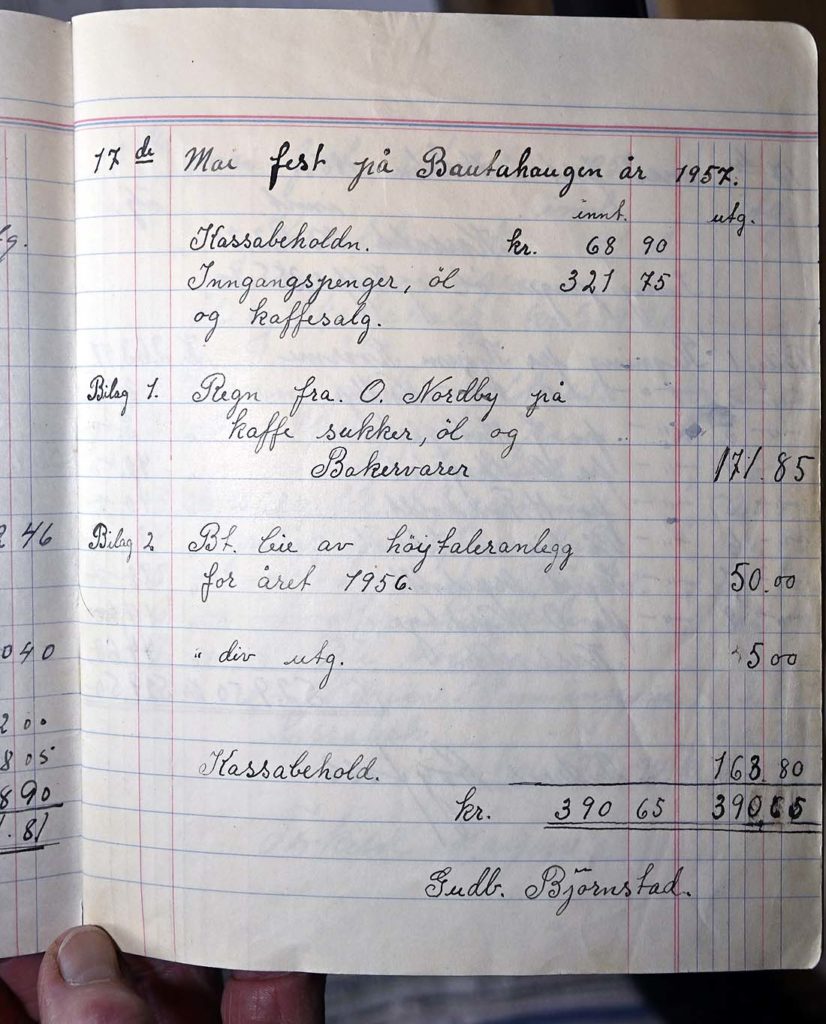 17 de Mai fest på Bautahaugen år 1957.
innt. utg.
Kassabeholdn. kr. 68 90
Inngangspenger, öl 321 75
og kaffesalg.
Bilag 1. Regn fra. O. Nordby på
kaffe sukker, öl og
Bakervarer 171.85
46 Bilag 2 Bt. leie av höytaleranlegg
for året 1956. 50.00
040 " div utg. 5 00
200
805 Kassabehold. 163.80
890 kr. 390 65 390 65
.81
Gudb. Björnstad.